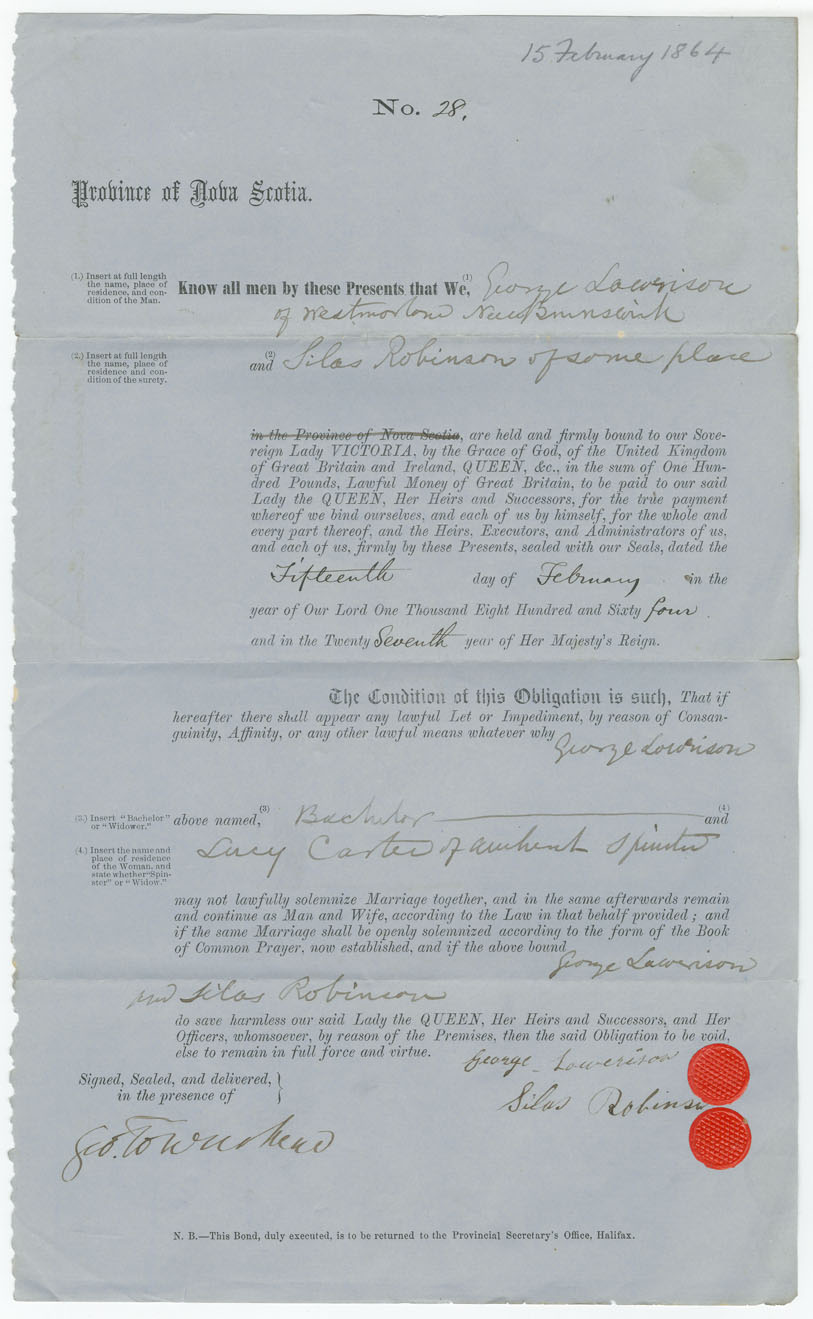 15 February 1864
No. 28.
Province of Nova Scotia.
(1.) Insert at full length
the name, place of
residence, and con-
dition of the Man.
Know all men by these Presents that We, (1) George Lowerison
of Westmorland New Brunswick
(2.) Insert at full length
the name, place of
residence and con-
dition of the surety.
and (2) Silas Robinson of same place
in the Province of Nova Scotia, are held and firmly bound to our Sove-
reign Lady VICTORIA, by the Grace of God, of the United Kingdom
of Great Britain and Ireland, QUEEN, &c., in the sum of One Hun-
dred Pounds, Lawful Money of Great Britain, to be paid to our said
Lady the QUEEN, Her Heirs and Successors, for the true payment
whereof we bind ourselves, and each of us by himself, for the whole and
every part thereof, and the Heirs, Executors, and Administrators of us,
and each of us, firmly by these Presents, sealed with our Seals, dated the
Fifteenth day of February in the
year of Our Lord One Thousand Eight Hundred and Sixty four
and in the Twenty Seventh year of Her Majesty's Reign.
The Condition of this Obligation is such, That if
hereafter there shall appear any lawful Let or Impediment, by reason of Consan-
guinity, Affinity, or any other lawful means whatever why
George Lowerison
(3.) Insert "Bachelor"
or "Widower."
above named, (3) Bachelor (4) and
(4.) Insert the name and
place of residence
of the Woman, and
state whether "Spin-
ster" or "Widow."
Lucy Carter of Amherst Spinster
may not lawfully solemnize Marriage together, and in the same afterwards remain
and continue as Man and Wife, according to the Law in that behalf provided; and
if the same Marriage shall be openly solemnized according to the form of the Book
of Common Prayer, now established, and if the above bound
George Lawerison
and Silas Robinson
do save harmless our said Lady the QUEEN, Her Heirs and Successors, and Her
Officers, whomsoever, by reason of the Premises, then the said Obligation to be void,
else to remain in full force and virtue.
George Lowerison
Signed, Sealed, and delivered,
in the presence of
Silas Robinson
Geo. Townshend
N. B.—This Bond, duly executed, is to be returned to the Provincial Secretary's Office, Halifax.